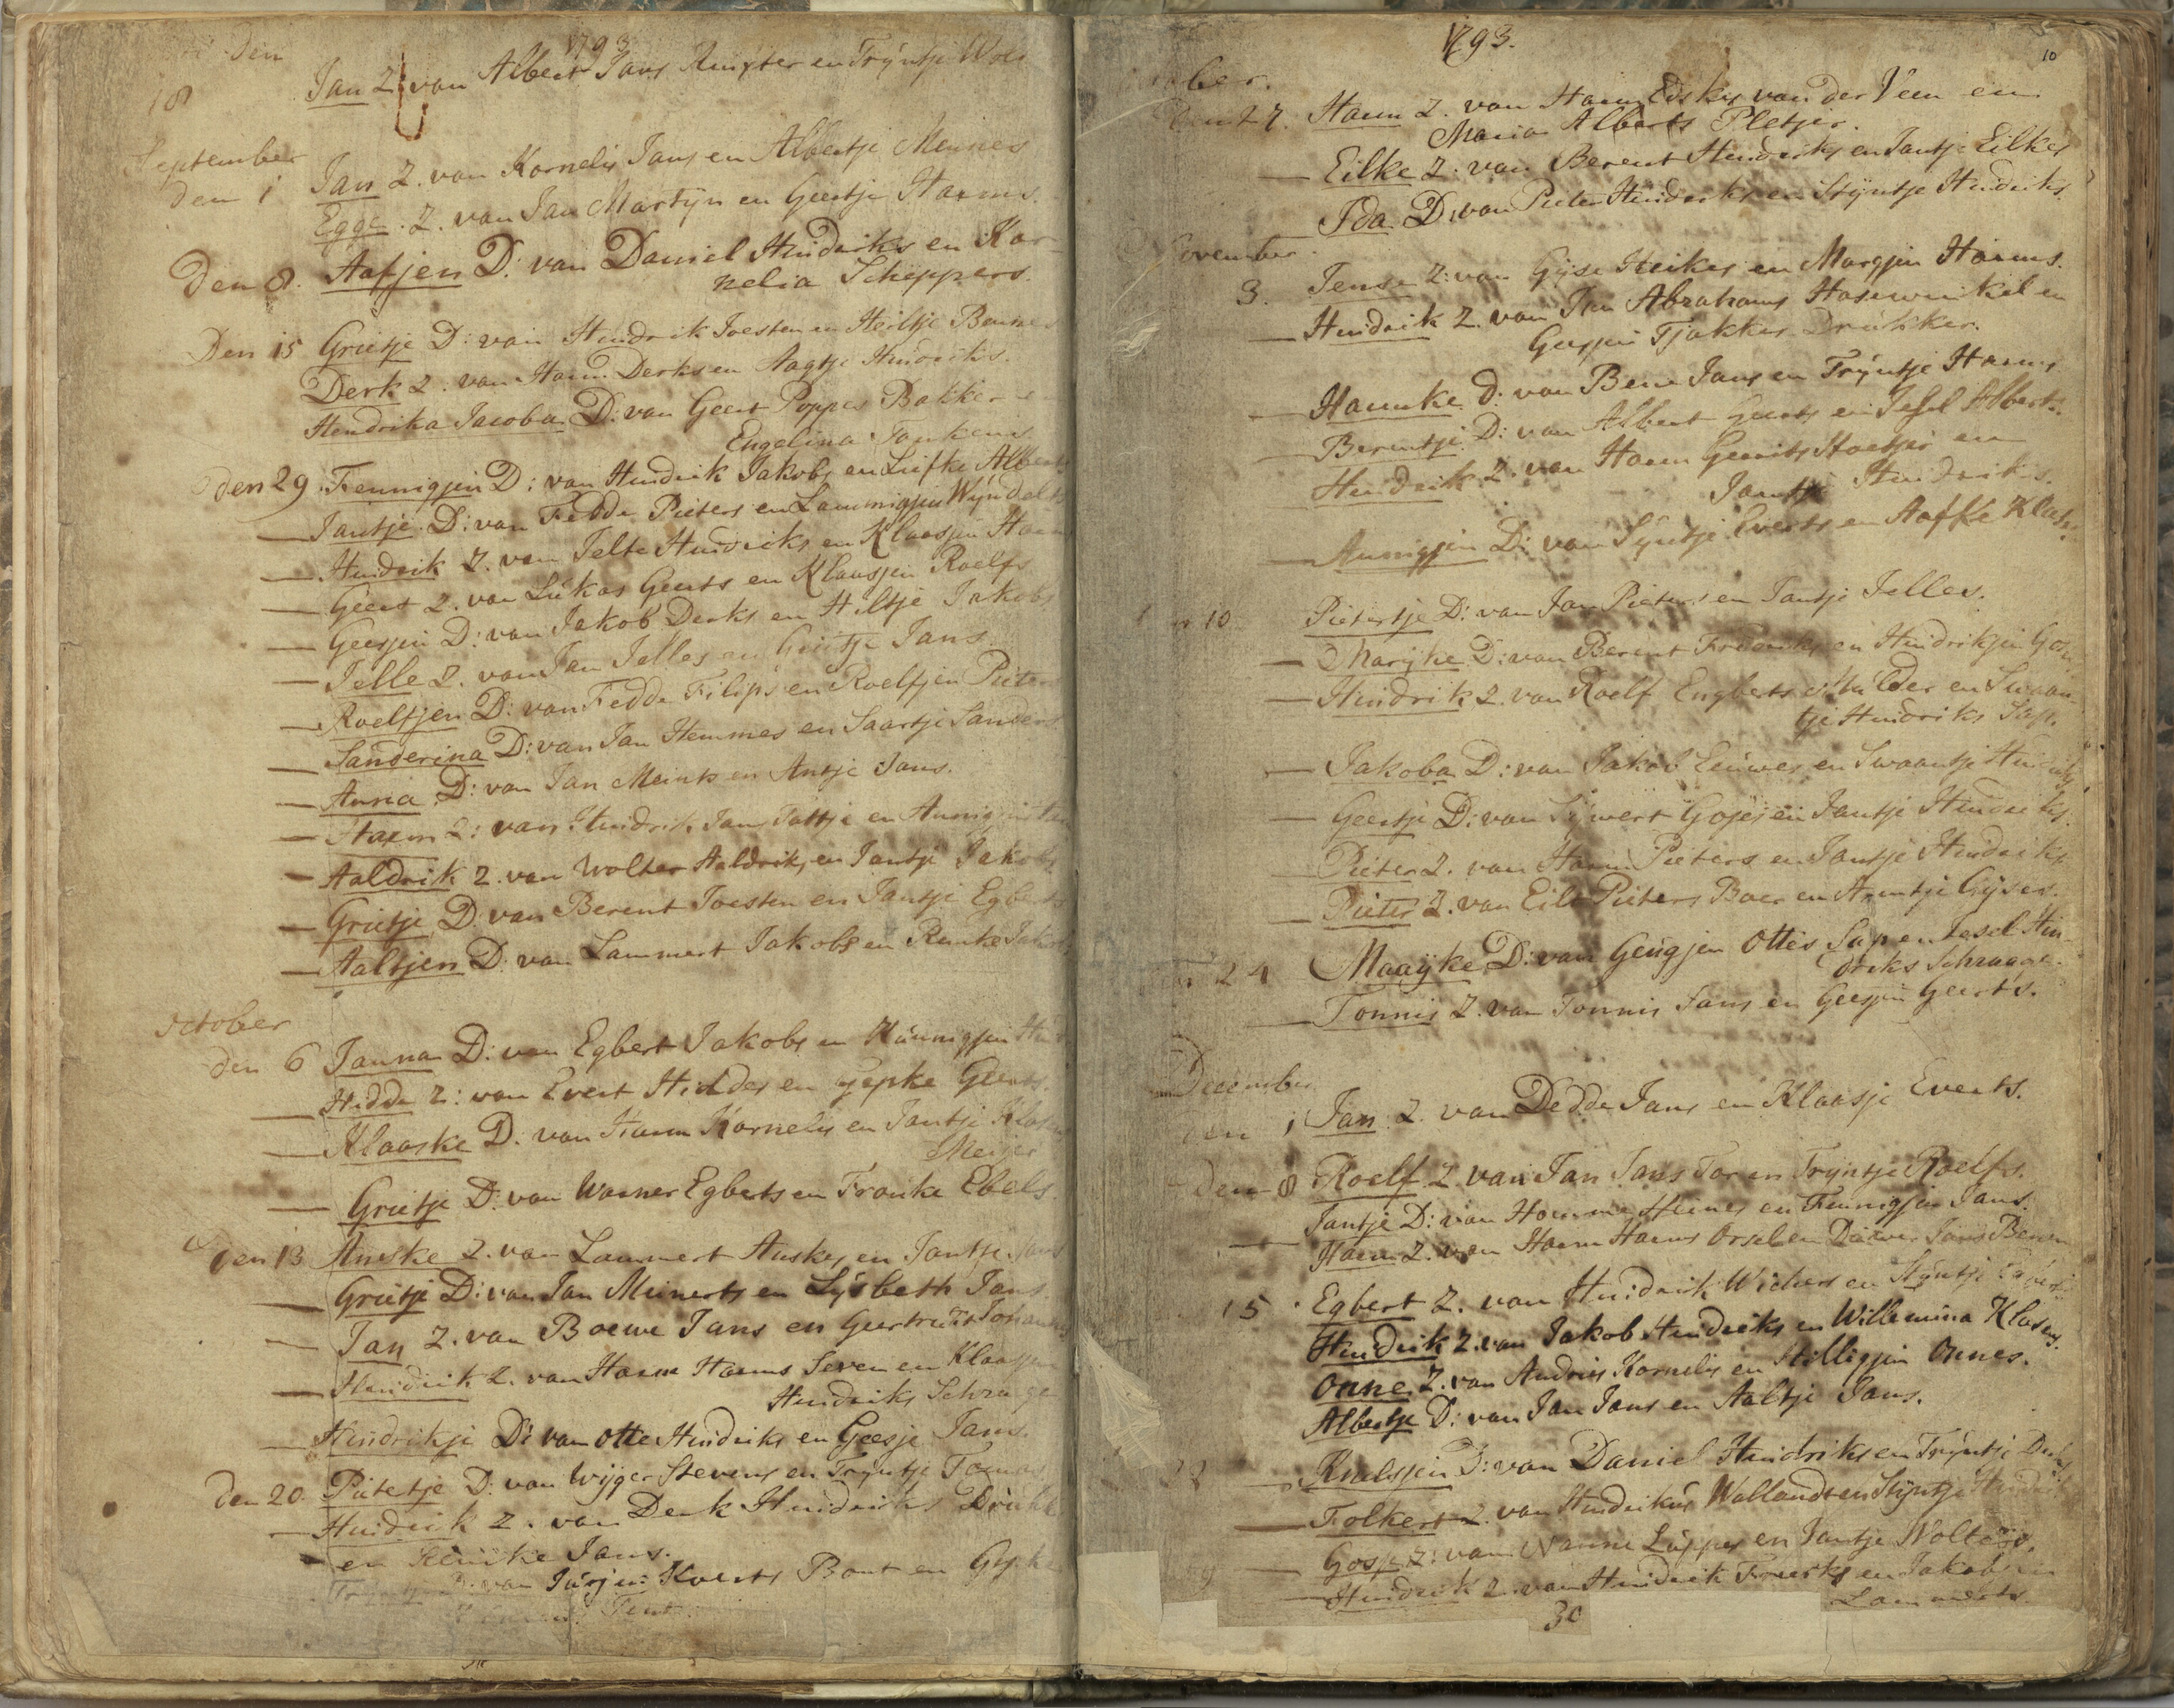 1793
den
18 Jan Z. van Albert Jans Ruijter en Trÿntje Wols
September
den 1 Jan Z. van Kornelis Jans en Albertje Meines
Egge. Z. van Jan Martÿn en Geertje Harms.
Den 8. Aafjen D: van Daniel Hindriks en Kor-
nelia Scheppers.
Den 15 Grietje D: van Hindrik Joesten en Heiltje
Derk Z: van Harm Derks en Aagtje Hindriks.
Hendrika Jacoba D: van Geert Poppes Bakker
Engelina Tonkens
den 29 Fennigjen D: van Hindrik Jakobs en Liefke Alberts
— Jantje D: van Fedde Pieters en Lammigjen Wÿndelts
— Hindrik Z. van Jelte Hindriks en Klaasjen Harms
— Geert Z. van Lukas Geerts en Klaasjen Roelfs
— Geesjen D: van Jakob Derks en Hiltje Jakobs
— Jelle Z. van Jan Jelles en Grietje Jans.
— Roelfjen D: van Fedde Filips en Roelfjen Pieters
— Sanderina D: van Jan Hemmes en Saartje Sanders
— Anna D: van Jan Meints en Antje Jans.
— Harm Z: van Hindrik Jans Tattje en Annigjen
— Aaldrik Z. van Wolter Aaldriks en Jantje Jakobs
— Grietje D: van Berent Joesten en Jantje Egberts
— Aaltjen D: van Lammert Jakobs en Renke Jakobs
October
den 6 Janna D: van Egbert Jakobs en Hinnigjen
— Hidde Z: van Evert Hiddes en Gepke Geerts.
— Klaaske D. van Harm Kornelis en Jantje Klasens
Meijer
— Grietje D: van Warner Egberts en Frouke Ebels.
Den 13 Anske Z. van Lammert Anskes en Jantje Jans
— Grietje D: van Jan Meinerts en Lÿsbeth Jans.
— Jan Z. van Boewe Jans en Geertruit
— Hindrik Z. van Harm Harms Seven en Klaasjen
Hindriks Schrage
— Hindrikje D: van Otte Hindriks en Geesje Jans.
Den 20. Pietertje D. van Wÿger Stevens en Trÿntje Tomas
— Hindrik Z. van Derk Hindriks
— en Jans.
D: van Jurjen Koerts Bont en
1793.
10
den 27. Harm Z. van Harm Edskes van der Veen en
Maria Alberts Pletjer.
— Eilke Z: van Berent Hindriks en Jantje Eilkes
Ida D: van Pieter Hinderks en Stÿntje Hindriks.
November.
3. Jense Z: van Gÿse Heikes en Margjen Harms.
— Hindrik Z. van Jan Abrahams Hasewinkel en
Geesjen Tjakkes Drukker.
— Hamke D: van Bene Jans en Trÿntje Harms
— Berentje D: van Albert Geerts en Jesel Alberts.
Hindrik Z. van Harm Gerrits Stoetjer en
Jantje Hindriks.
— Annigjen D: van Sÿntje Everts en Aafke Klasens
10 Pietertje D: van Jan Pieters en Jantje Jelles.
— Marÿke D: van Berent Freerks en Hindrikjen
— Hindrik Z. van Roelf Engberts Mulder en Swaan-
tje Hindriks Sap.
— Jakoba D: van Jakob Eeuwes en Swaantje Hindriks
— Geertje D: van Sÿwert Gojes en Jantje Hindriks.
— Pieter Z. van Harm Pieters en Jantje Hindriks.
— Pieter Z. van Eile Pieters Boer en Arentje Gÿses.
24 Maaÿke D: van Geugjen Ottes Sap en Jesel Hin-
driks Schraage.
— Tonnis Z. van Tonnis Jans en Geesjen Geerts.
December
den 1 Jan Z. van Dedde Jans en Klaasje Everts.
Den 8 Roelf Z. van Jan Jans Tor en Trÿntje Roelfs.
— Jantje D: van Homme Heines en Fennigjen Jans.
Harm Z. van Harm Harms Orsel en Jans
15 Egbert Z. van Hindrik Wichers en Stÿntje Egberts
Hindrik Z. van Jakob Hindriks en Willemina Klasens.
Onne Z. van Andries Kornelis en Hilligjen Onnes.
Albertje D: van Jan Jans en Aaltje Jans.
22 — Knelsjen D: van Daniel Hindriks en Trÿntje Derks
— Folkert Z. van Hindrikus Wallands en Stÿntje Hindriks
— Gosse Z: van Nanne Luppes en Jantje Wolters.
— Hindrik Z. van Hindrik Freerks en Jakobjen
Lammerts.
30